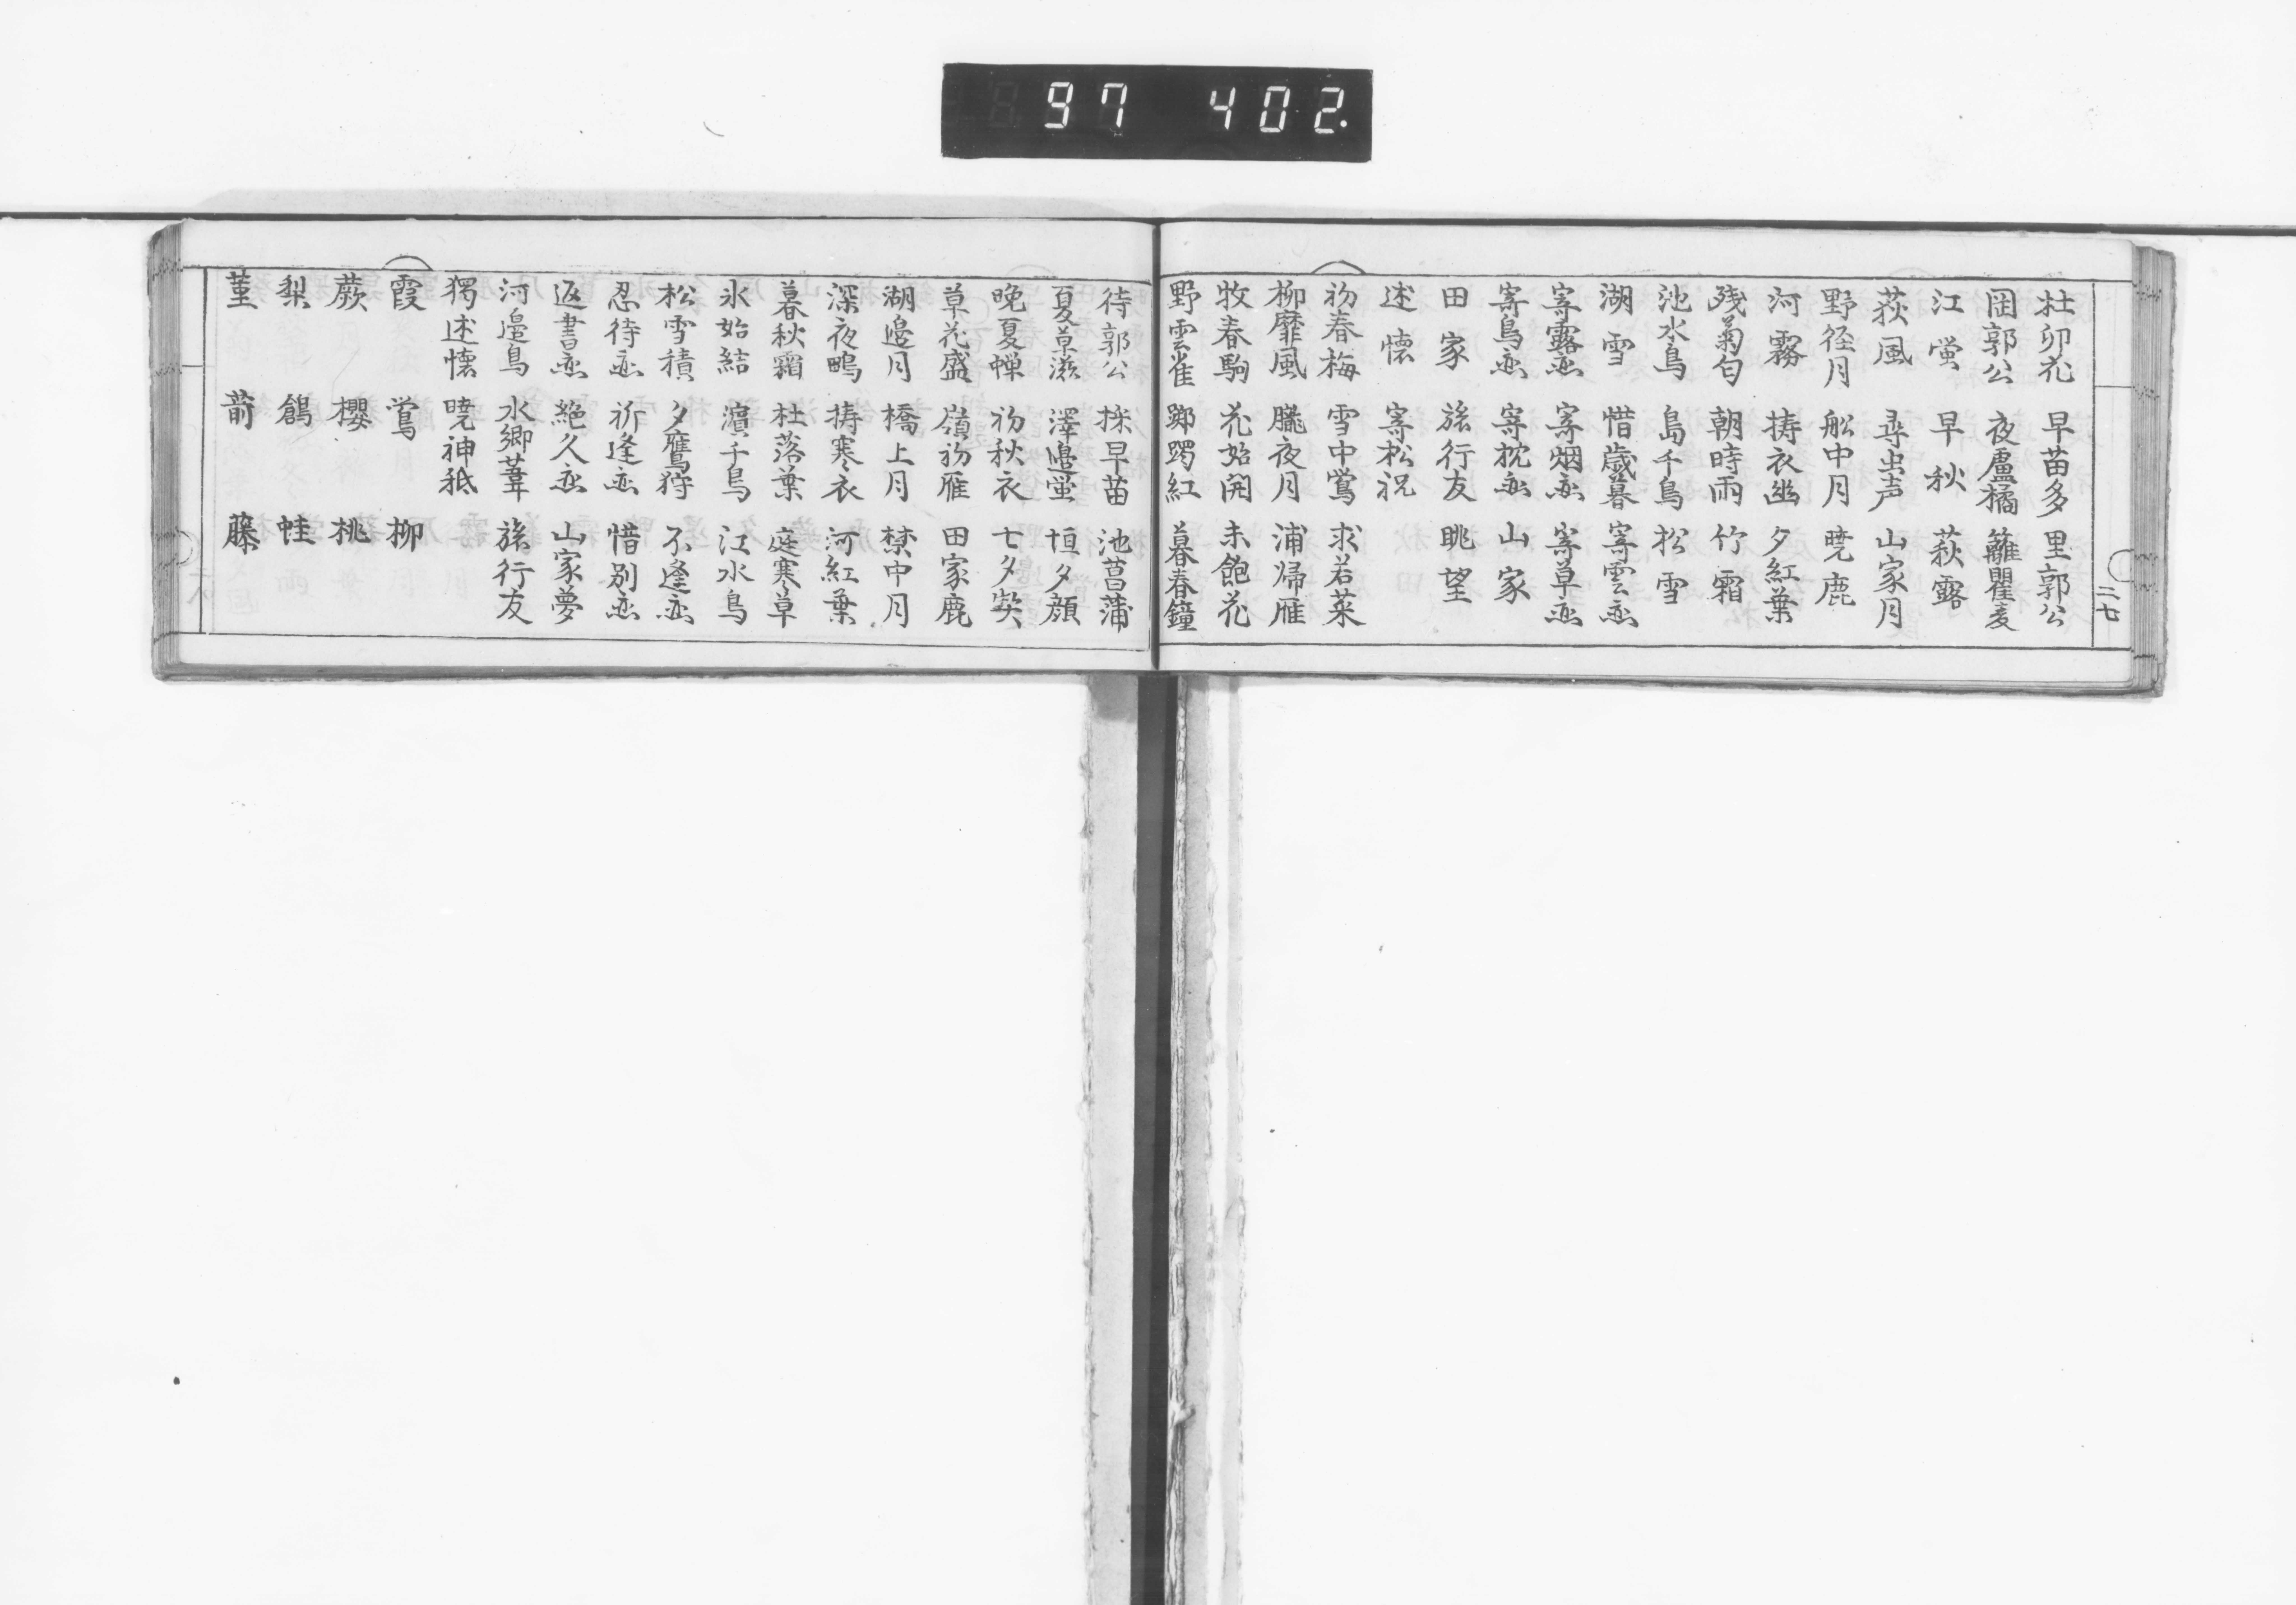 97 402
二七
杜卯花 早苗多 里郭公
岡郭公 夜盧橘 籬瞿麦
江蛍 早秋 萩露
荻風 尋虫声 山家月
野径月 舩中月 暁鹿
河霧 擣衣幽 夕紅葉
残菊匂 朝時雨 竹霜
池水鳥 島千鳥 松雪
湖雪 惜歳暮 寄雲恋
寄露恋 寄烟恋 寄草恋
寄鳥恋 寄枕恋 山家
田家 旅行友 眺望
述懐 寄松祝
初春梅 雪中鶯 求若菜
柳靡風 朧夜月 浦帰雁
牧春駒 花始開 未飽花
野雲雀 躑躅紅 暮春鐘
待郭公 採早苗 池菖蒲
夏草滋 澤邊蛍 垣夕顔
晩夏蝉 初秋衣 七夕契
草花盛 嶺初雁 田家鹿
湖邊月 橋上月 禁中月
深夜鴫 擣寒衣 河紅葉
暮秋霜 杜落葉 庭寒草
氷始結 濱千鳥 江水鳥
松雪積 夕鷹狩 不逢恋
忍待恋 祈逢恋 惜別恋
返書恋 絶久恋 山家夢
河邉鳥 水郷葦 旅行友
獨述懐 暁神祇
霞 鴬 柳
蕨 櫻 桃
梨 蛙
菫 藤